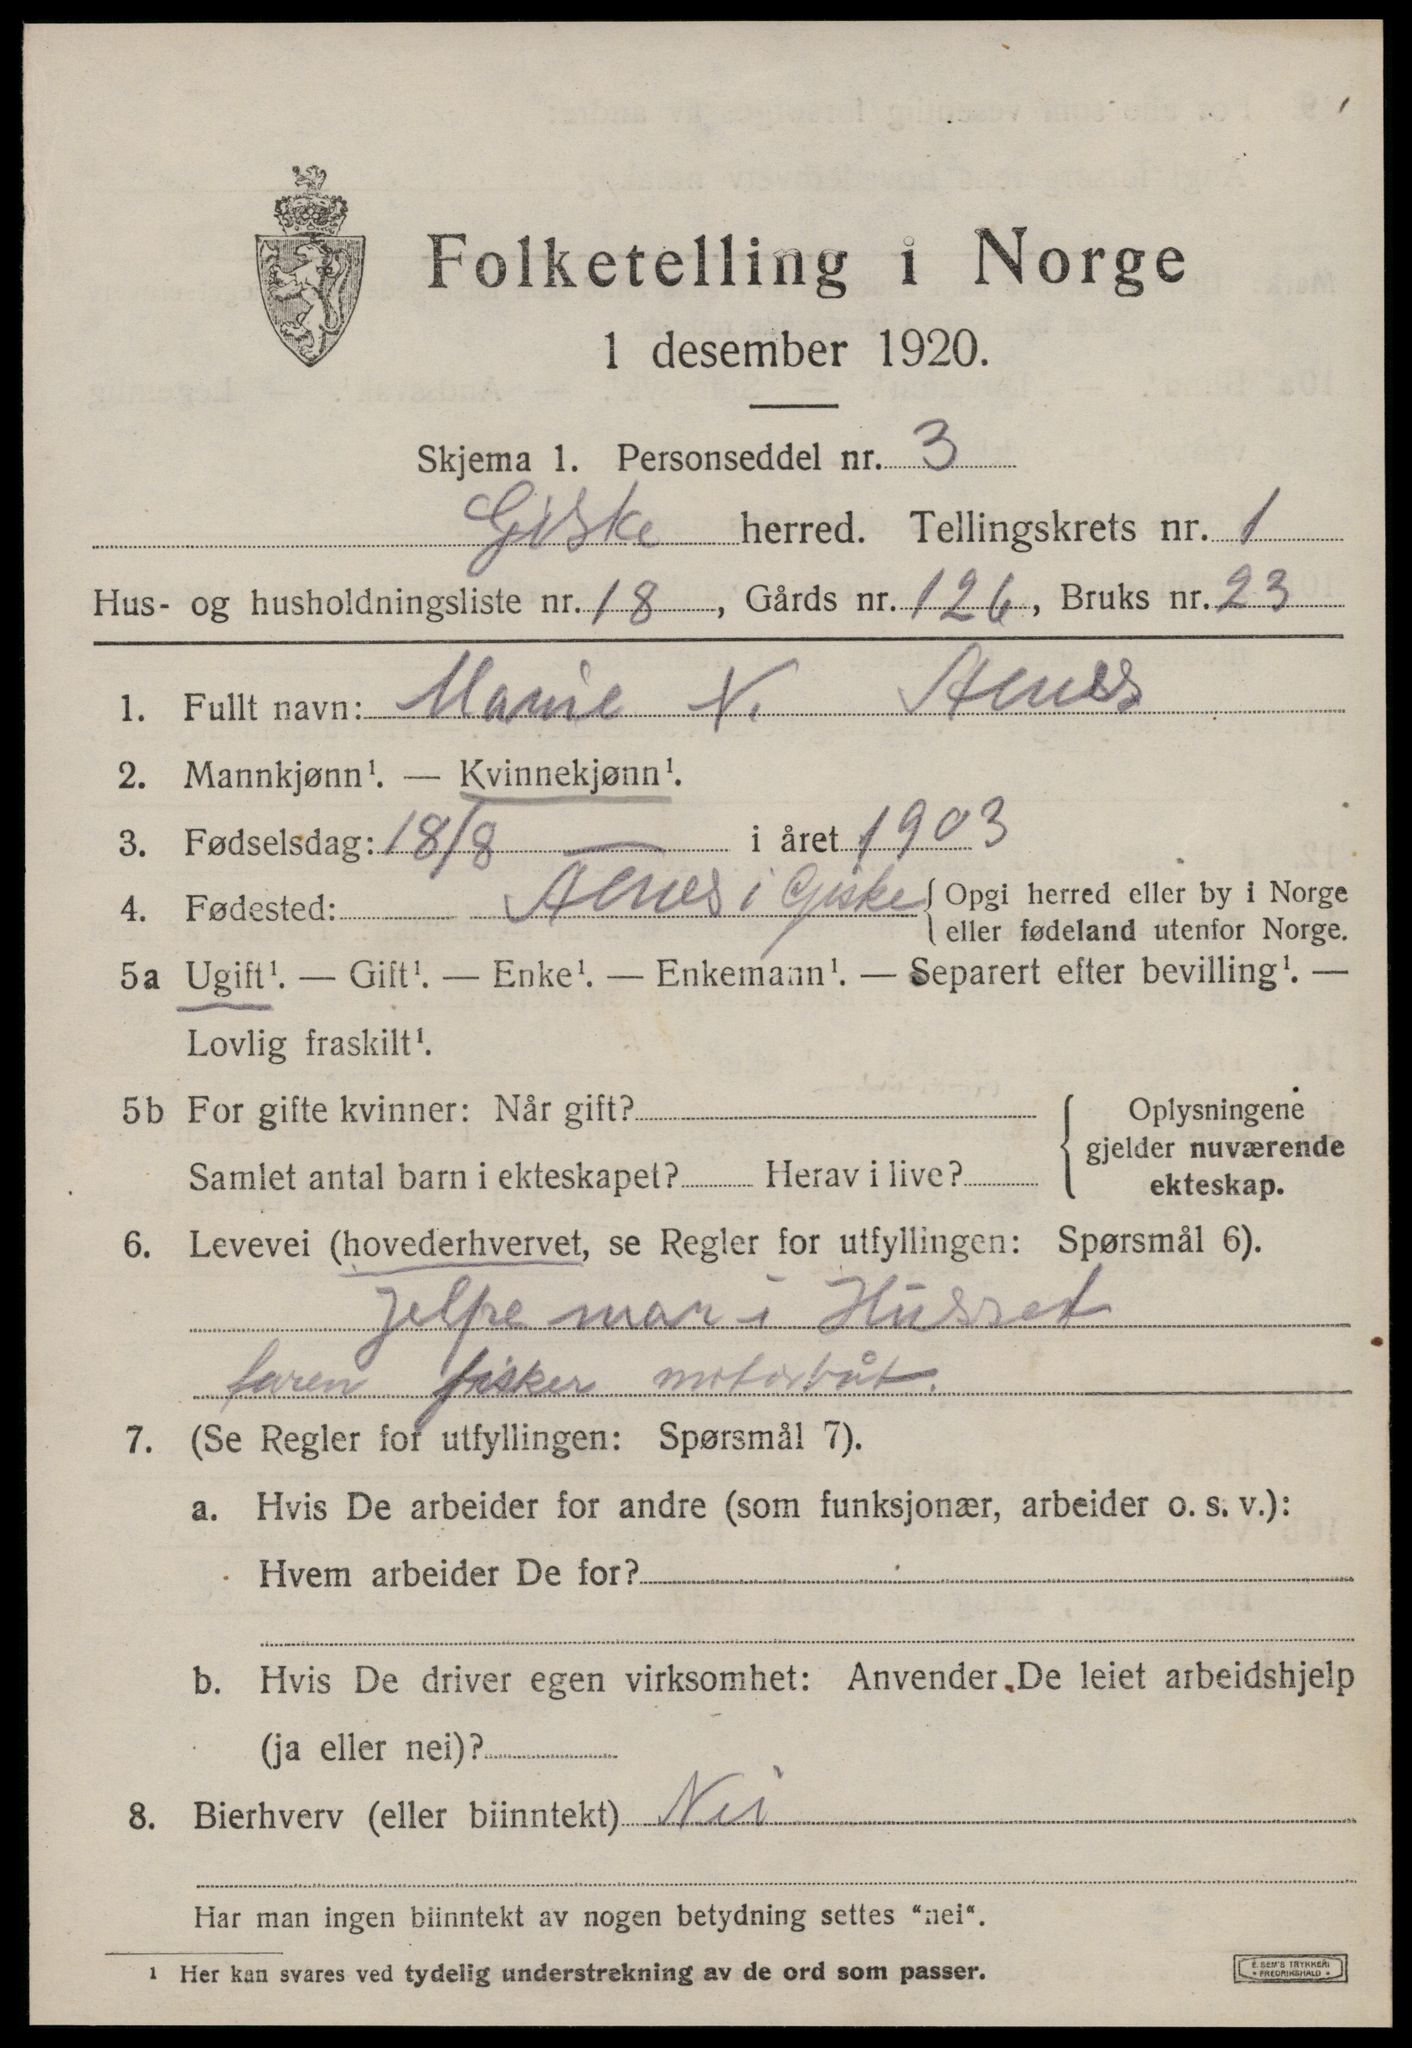 Folketelling i Norge
1 desember 1920.
Skjema 1. Personseddel nr. 3
Giske herred. Tellingskrets nr. 1
Hus- og husholdningsliste nr. 18, Gårds nr. 126, Bruks nr. 23
1. Fullt navn: Marie N. Alnes
2. Mannkjønn¹. — Kvinnekjønn¹.
3. Fødselsdag: 18/8 i året 1903
4. Fødested: Alnes i Giske { Opgi herred eller by i Norge
eller fødeland utenfor Norge.
5a Ugift¹. — Gift¹. — Enke¹. — Enkemann¹. — Separert efter bevilling¹. —
Lovlig fraskilt¹.
5b For gifte kvinner: Når gift? { Oplysningene
gjelder nuværende
Samlet antal barn i ekteskapet? Herav i live?
ekteskap.
6. Levevei (hovederhvervet, se Regler for utfyllingen: Spørsmål 6).
Jelpe mor i Husset
faren fisker motorbåt.
7. (Se Regler for utfyllingen: Spørsmål 7).
a. Hvis De arbeider for andre (som funksjonær, arbeider o. s. v.):
Hvem arbeider De for?
b. Hvis De driver egen virksomhet: Anvender De leiet arbeidshjelp
(ja eller nei)?
8. Bierhverv (eller biinntekt) Nei
Har man ingen biinntekt av nogen betydning settes "nei".
¹ Her kan svares ved tydelig understrekning av de ord som passer.
E. SEM'S TRYKKERI
FREDRIKSHALD